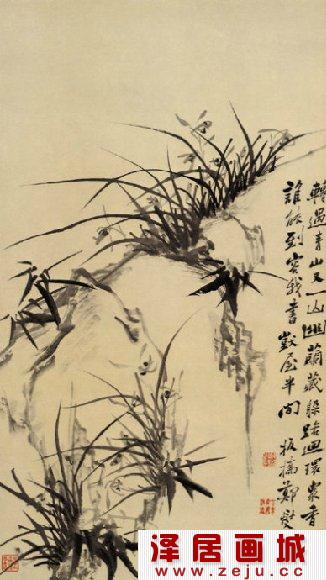 轉過青山又一山幽蘭藏躲路迴環衆香
誰能到容我書獃屋半間 板橋鄭燮
泽居画城
www.zeju.com